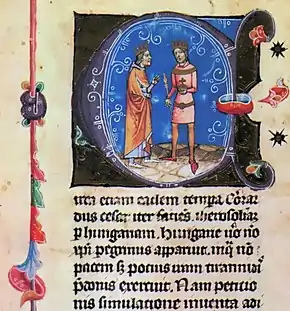 irca etiam eadem tempa Cōra
dus cesar iter faciēs
p hungariam. Hungarie uō nō
xpi pegrinus apparuit. inq nō
pacem sz potius iram tirannidi
pdonis exercuit. Nam peticio
nis simulatione inuenta adi